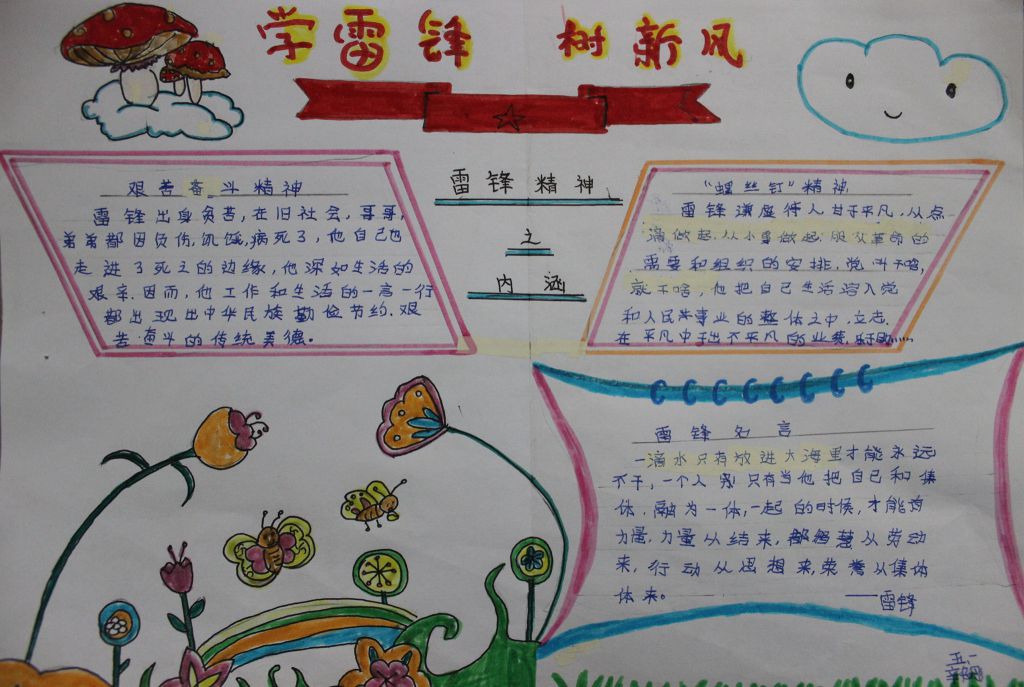 学雷锋 树新风
艰苦奋斗精神
雷锋出身贫苦,在旧社会,哥哥,
弟弟都因负伤,饥饿,病死了,他自己也
走进了死亡的边缘,他深知生活的
艰辛.因而,他工作和生活的一言一行
都出现出中华民族勤俭节约.艰
苦奋斗的传统美德。
雷锋精神
之
内涵
"螺丝钉"精神
雷锋谦虚待人甘于平凡,从点
滴做起.从小事做起.服从革命的
需要和组织的安排,党叫干啥,
就干啥,他把自己生活溶入党
和人民共事业的整体之中,立志.
在平凡中干出不平凡的业绩,乐于助……
雷锋名言
一滴水只有放进大海里才能永远
不干,一个人 只有当他把自己和集
体,融为一体,一起的时候,才能有
力量,力量从结来,智慧从劳动
来,行动从思想来,荣誉从集体
体来。
——雷锋
五.一